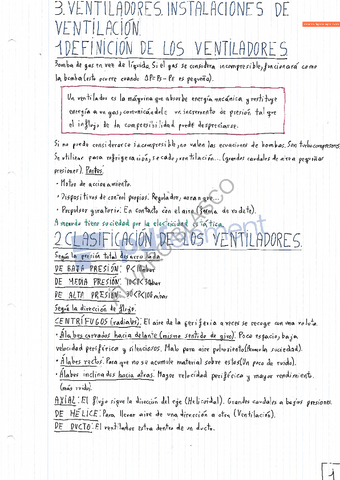 3. VENTILADORES. INSTALACIONES DE
VENTILACIÓN.
1 DEFINICIÓN DE LOS VENTILADORES
Bomba de gas en vez de líquido. Si el gas se considera incompresible, funcionará como
la bomba (esto ocurre cuando ΔP= es pequeña).
Un ventilador es la máquina que absorbe energía mecánica y restituye
energía a un gas, comunicándole un incremento de presión tal que
el influjo de la compresibilidad puede despreciarse.
Si no puedo considerarse incompresible, no valen las ecuaciones de bombas. Son turbocompresores
Se utilizar para refrigeración, secado, ventilación... (grandes caudales de aire a pequeñas
presiones). Partes:
- Motor de accionamiento.
- Dispositivos de control propios. Regulador, arranque...
- Propulsor giratorio: En contacto con el aire (forma de rodete).
A menudo tiene suciedad por la electricidad estática.
2 CLASIFICACIÓN DE LOS VENTILADORES.
Según la presión total desarrollada.
DE BAJA PRESIÓN: P<10mbar
DE MEDIA PRESIÓN: 10<P<30mbar
DE ALTA PRESIÓN: 30<P<100mbar
Según la dirección de flujo.
CENTRÍFUGOS (radiales). El aire de la periferia a veces se recoge con una voluta.
- Álabes curvados hacia delante (mismo sentido de giro). Poco espacio, baja
velocidad periférica y silenciosos. Malo para aire polvoriento (Acumula suciedad).
- Álabes rectos. Para que no se acumule material sobre estos (Un poco de ruido).
- Álabes inclinados hacia atrás. Mayor velocidad periférica y mayor rendimiento.
(más ruido).
AXIAL: El flujo sigue la dirección del eje (Helicoidal). Grandes caudales a bajas presiones.
DE HÉLICE: Para llevar aire de una dirección a otra (Ventilación).
DE DUCTO: El ventilador estra dentro de un ducto.
1